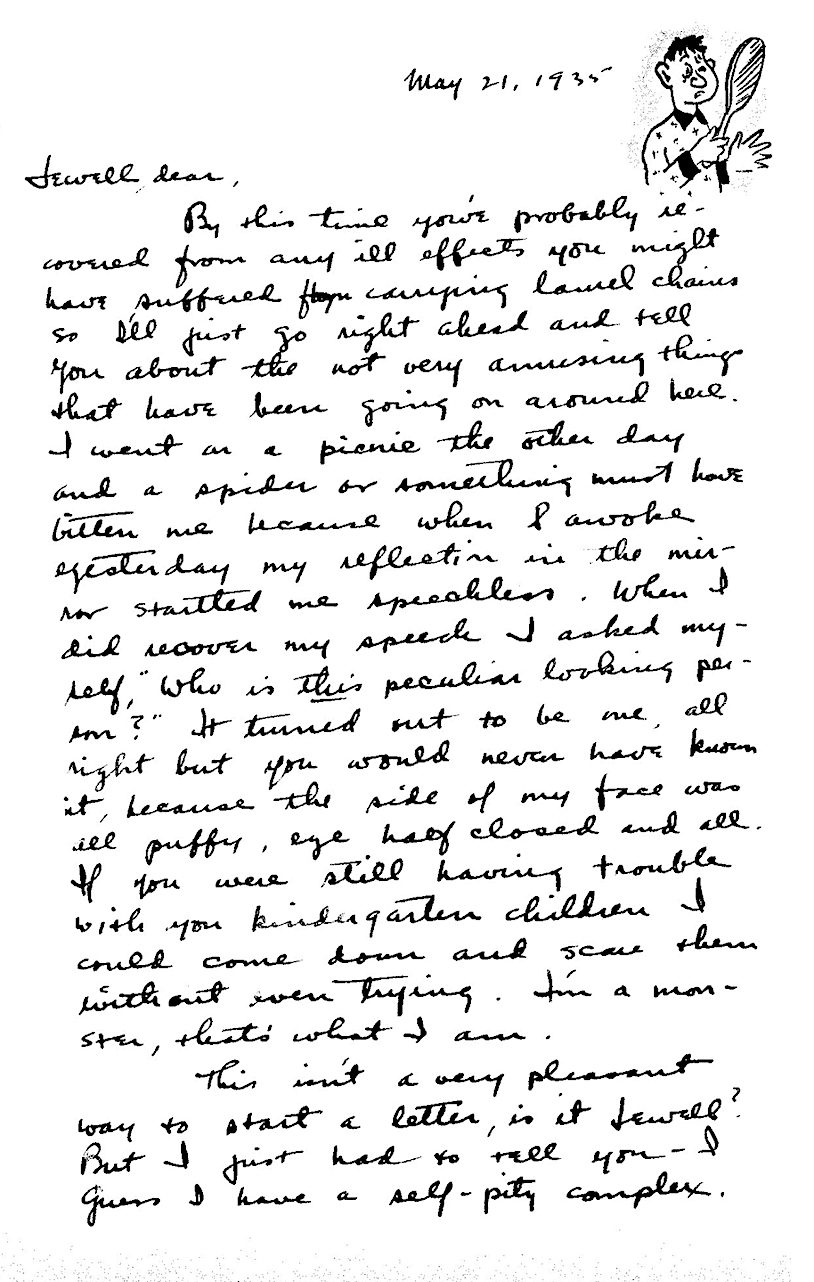 May 21, 1935
Jewell dear,
By this time you've probably re-
covered from any ill effects you might
have suffered from carrying laurel chains
so I'll just go right ahead and tell
you about the not very amusing things
that have been going on around here.
I went on a picnic the other day
and a spider or something must have
bitten me because when I awoke
yesterday my reflection in the mir-
ror startled me speechless. When I
did recover my speech I asked my-
self, "Who is this peculiar looking per-
son?" It turned out to be me, all
right but you would never have known
it, because the side of my face was
all puffy, eye half closed and all.
If you were still having trouble
with you kindergarten children I
could come down and scare them
without even trying. I'm a mon-
ster, that's what I am.
This isn't a very pleasant
way to start a letter, is it Jewell?
But I just had to tell you - I
guess I have a self-pity complex.